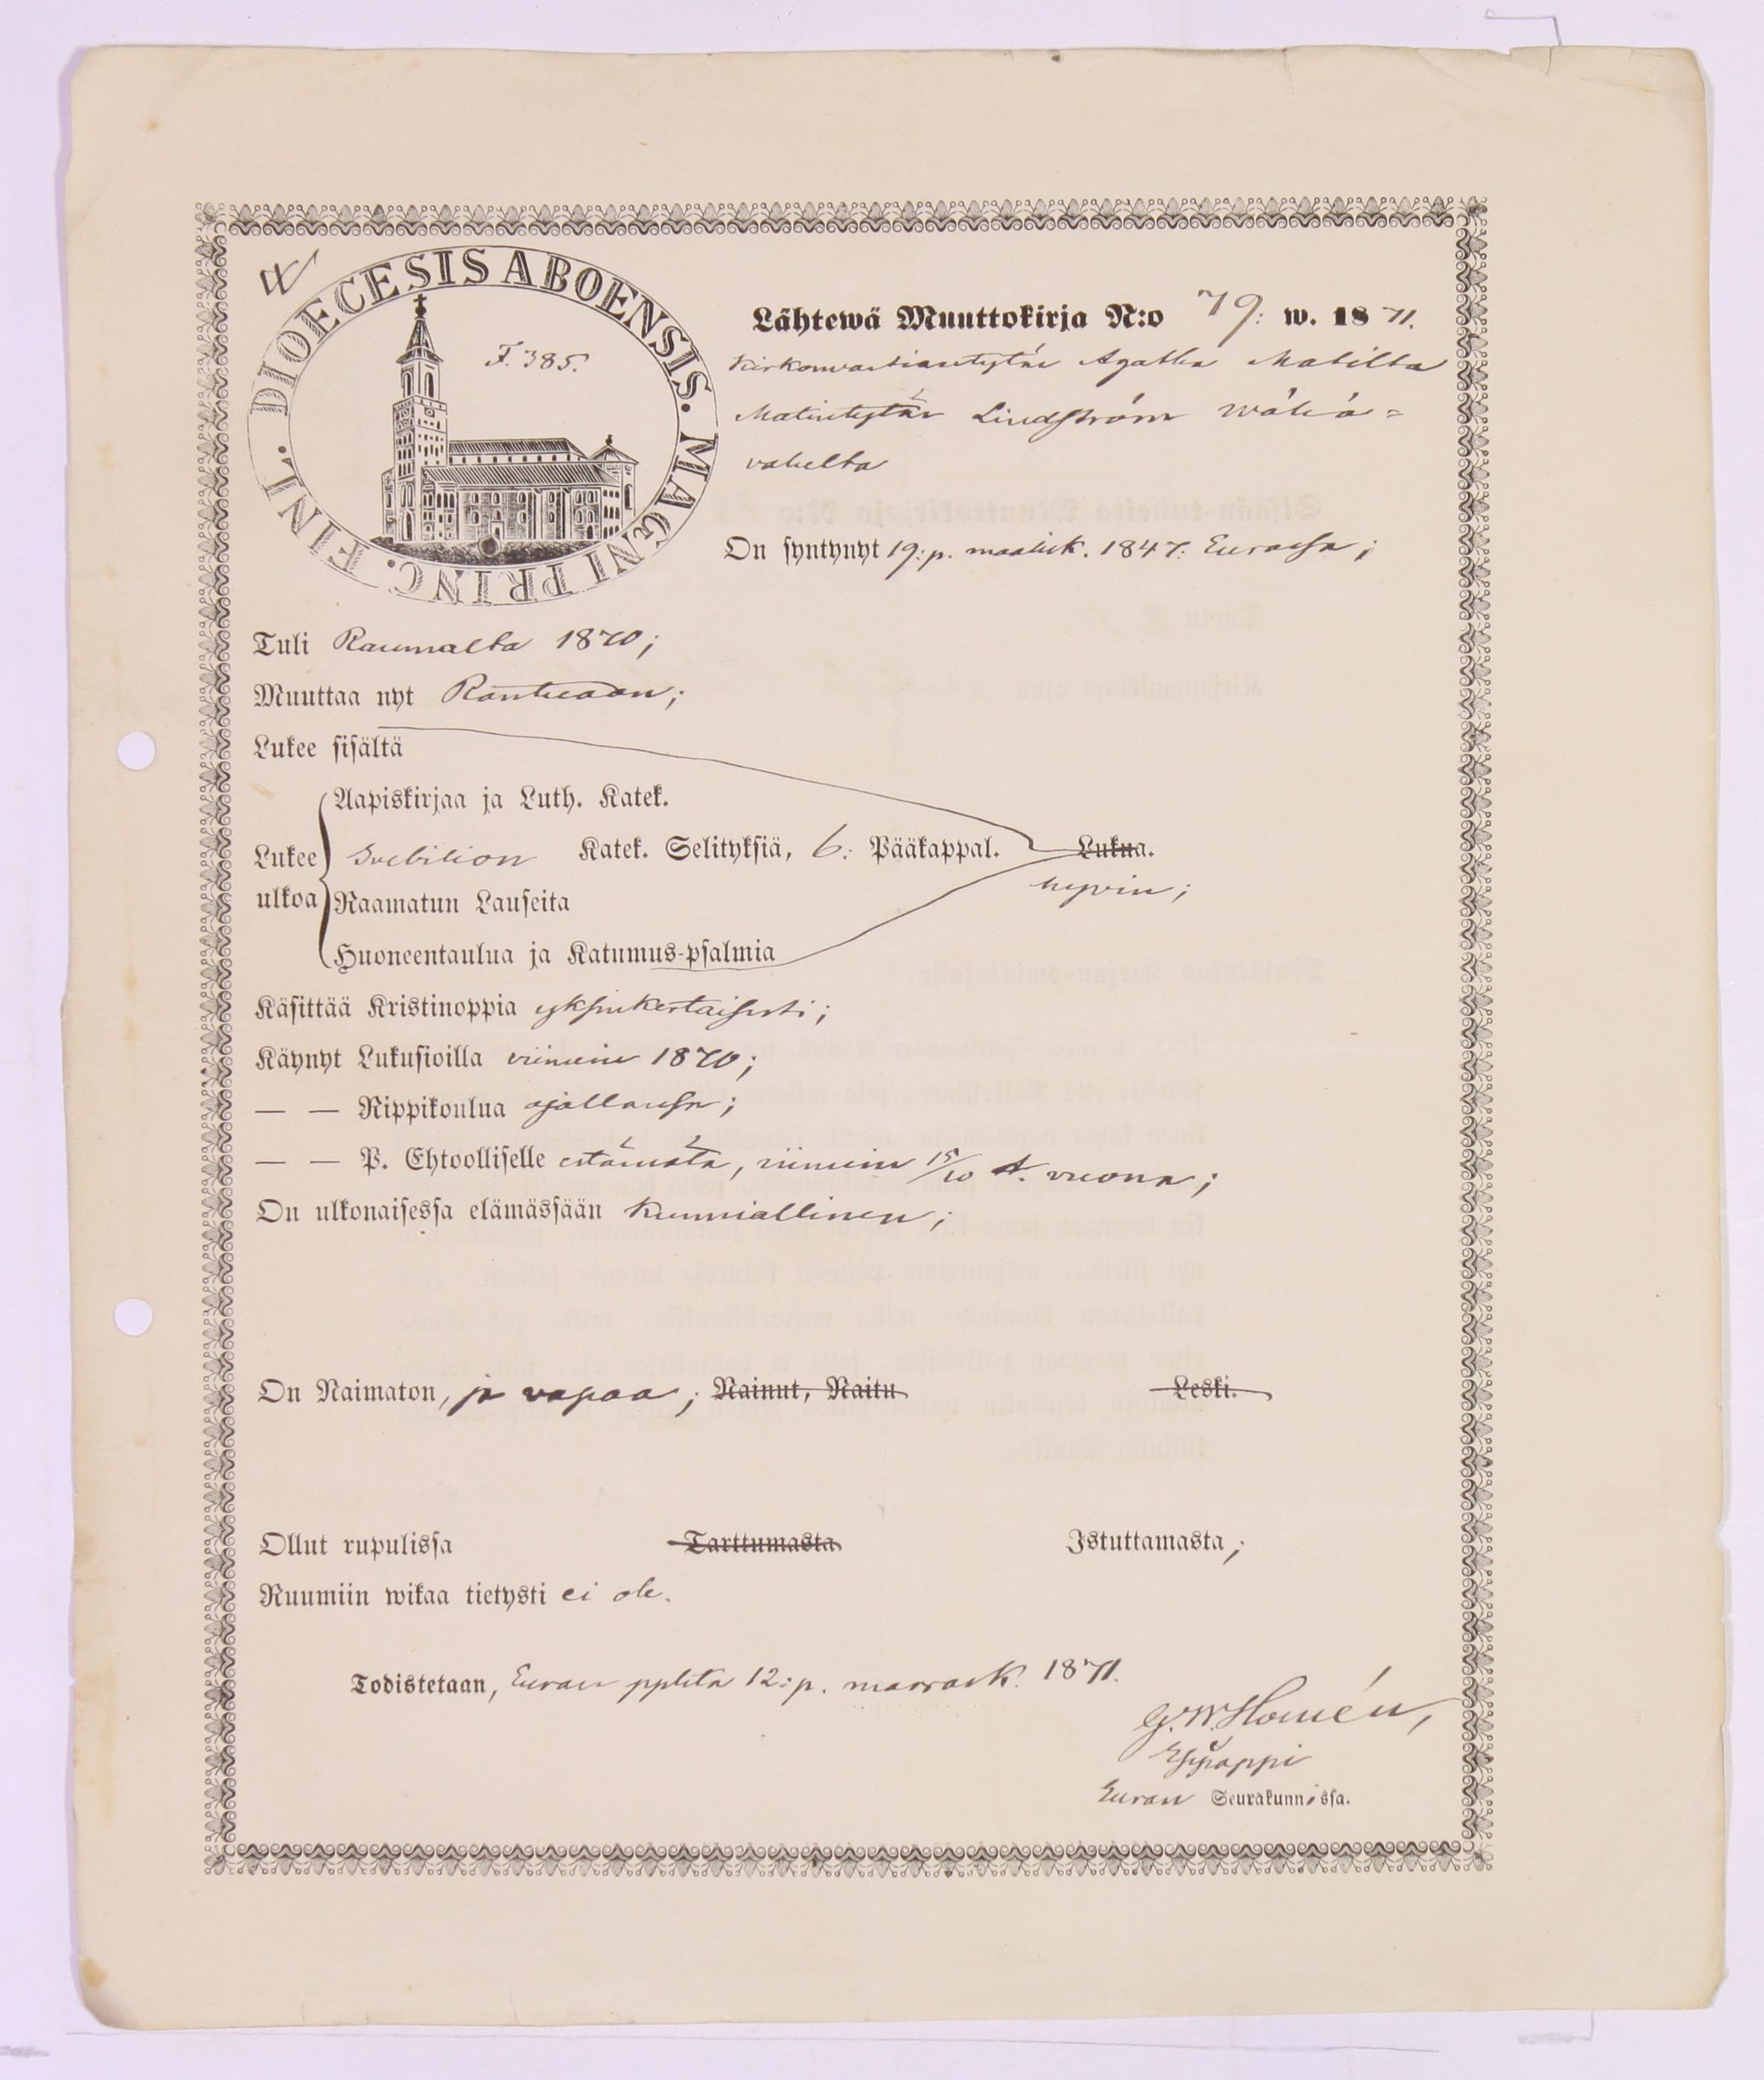 DIOECESIS ABOENSIS. MAGNI PRINC. FINL.
F. 385.
Lähtewä Muuttokirja N:o 79: w. 1871.
Kirkonvartiantytär Agatha Matilta
Matintytär Lindström Wähä=
vahelta
On syntynyt 19:p. maalisk. 1847: Eurassa;
Tuli Raumalta 1870;
Muuttaa nyt Rantaaan;
Lukee sisältä
Aapiskirjaa ja Luth. Katek.
Lukee ulkoa Svebilion Katek. Selityksiä, 6: Pääkappal. Lukua.
hyvin;
Raamatun Lauseita
Huoneentaulua ja Katumus-psalmia
Käsittää Kristinoppia yksinkertaisesti;
Käynyt Lukusioilla viimein 1870;
— — Rippikoulua ajallansa;
— — P. Ehtoolliselle estämätä, viimein 15/10 t. vuonna;
On ulkonaisessa elämässään kunniallinen;
On Naimaton, ja vapaa; Nainut, Naitu Leski.
Ollut rupulissa Tarttumasta Istuttamasta;
Ruumiin wikaa tietysti ei ole.
Todistetaan, Euran pplsta 12:p. marrask. 1871.
G. W. Homén,
Euran Seurakunnissa.